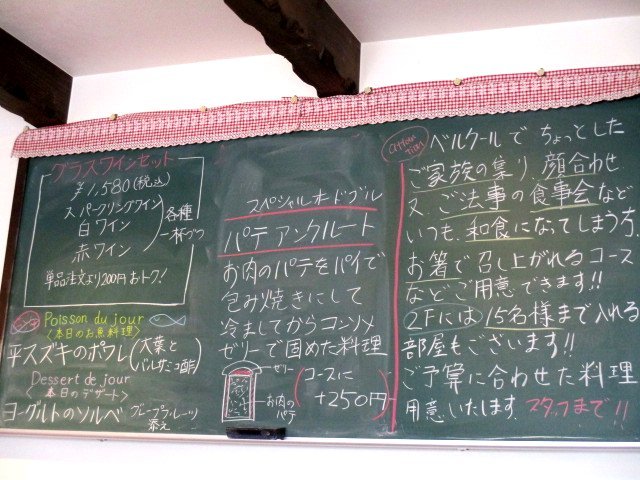 グラスワインセット
¥1,580(税込)
スパークリングワイン
白ワイン
赤ワイン
各種
一杯づつ
単品注文より200円おトク!
Poisson du jour
<本日のお魚料理>
平スズキのポワレ(大葉と
バルサミコ酢)
Dessert de jour
本日のデザート>
ヨーグルトのソルベ
グレープフルーツ
添え
スペシャルオードブル
パテアンクルート
お肉のパテをパイで
包み焼きにして
冷ましてからコンソメ
ゼリーで固めた料理
ゼリー
お肉の
パテ
(コースに
+250円)
attention
ベルクールで ちょっとした
ご家族の集り、顔合わせ
又、ご法事の食事会など
いつも、和食になってしまう方、
お箸で召し上がれるコース
などご用意できます!!
2Fには15名様まで入れる
部屋もございます!!
ご予算に合わせた料理
用意いたします。スタッフまで!!